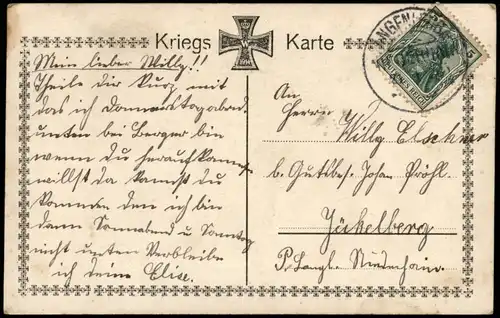 Kriegs Karte
W
1914
Mein lieber Willy!!
Theile dir Kurz mit
das ich Donnerstagabend
unten bei Berger bin
wenn du heraufkommen
willst da kannst du
kommen den ich bin
dann Sonnabend u Sonntag
nicht unten Verbleibe
ich deine Elise.
An
Herrn
Willy Elschner
b. Gutsbes. Johan Pröhl.
Jückelberg
P. Langl. Niederhain.
5
DEUTSCHES REICH